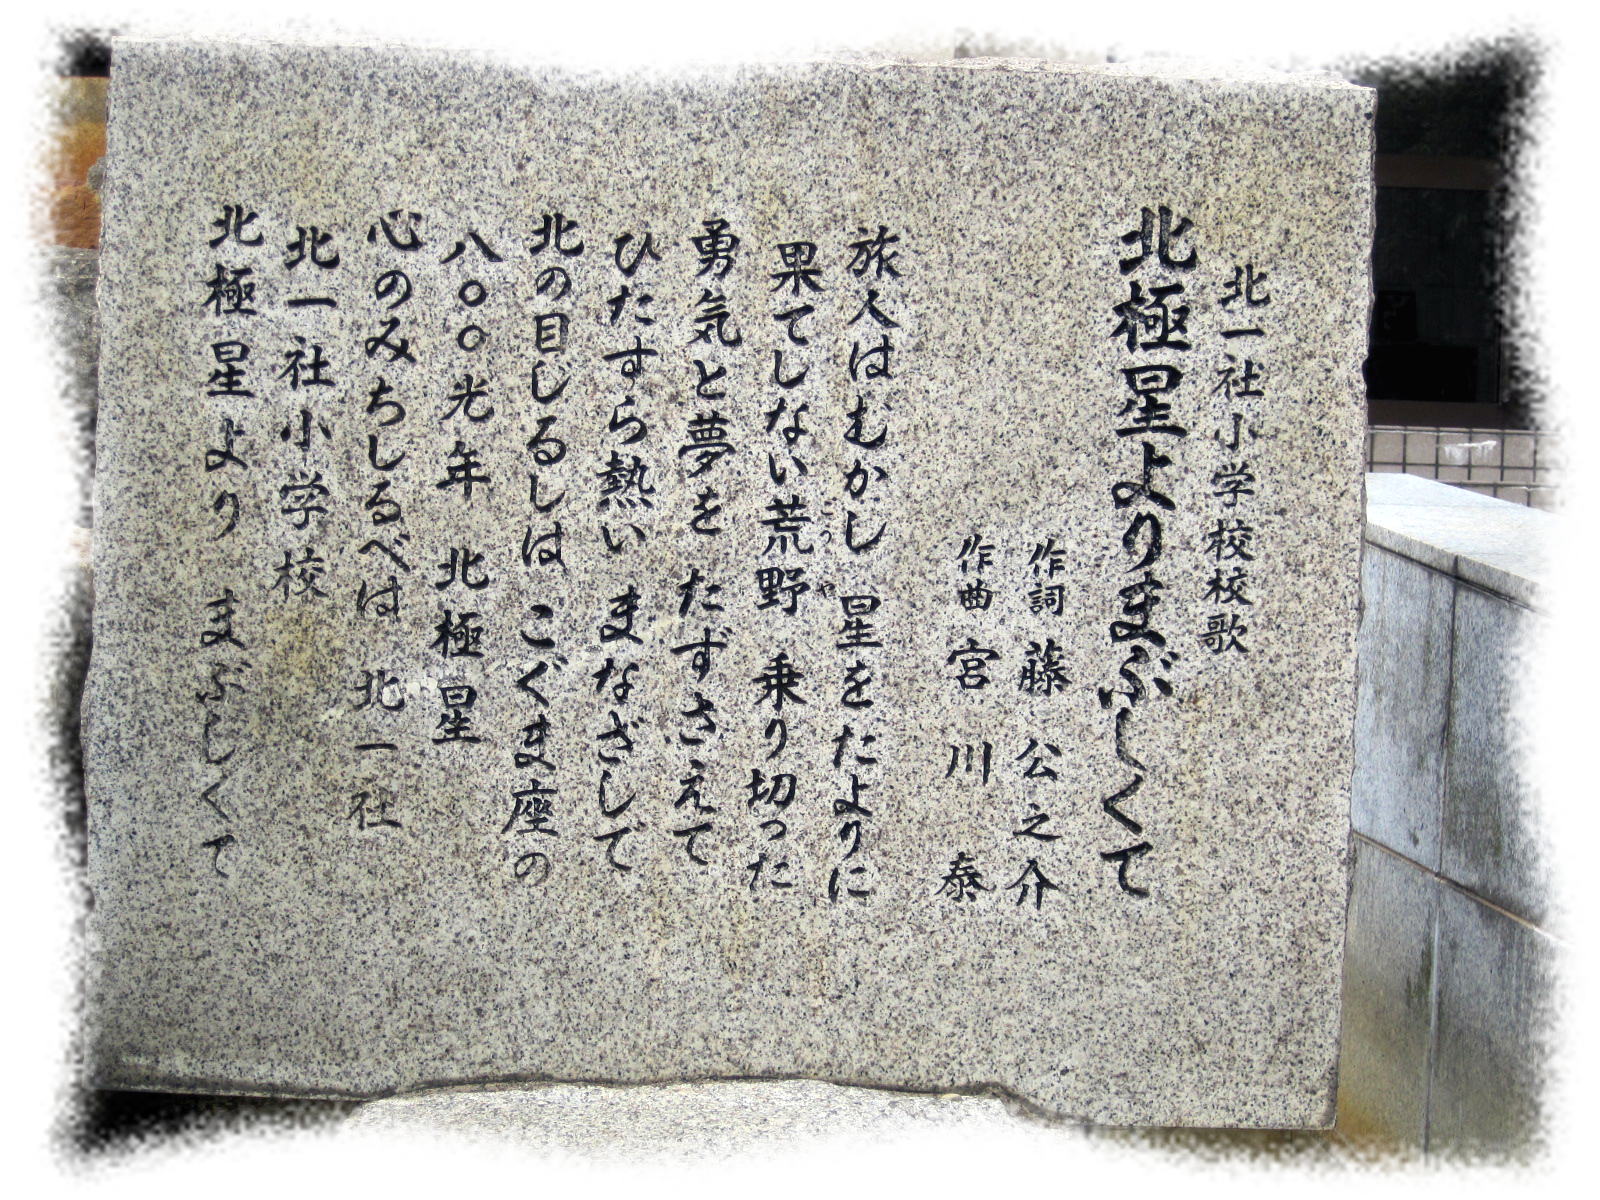 北一社小学校校歌
北極星よりまぶしくて
作詞 藤公之介
作曲 宮川泰
旅人はむかし 星をたよりに
果てしない荒野 乗り切った
こうや
勇気と夢を たずさえて
ひたすら熱い まなざしで
北の目じるしは こぐま座の
八〇〇光年 北極星
心のみちしるべは 北一社
北一社小学校
北極星より まぶしくて